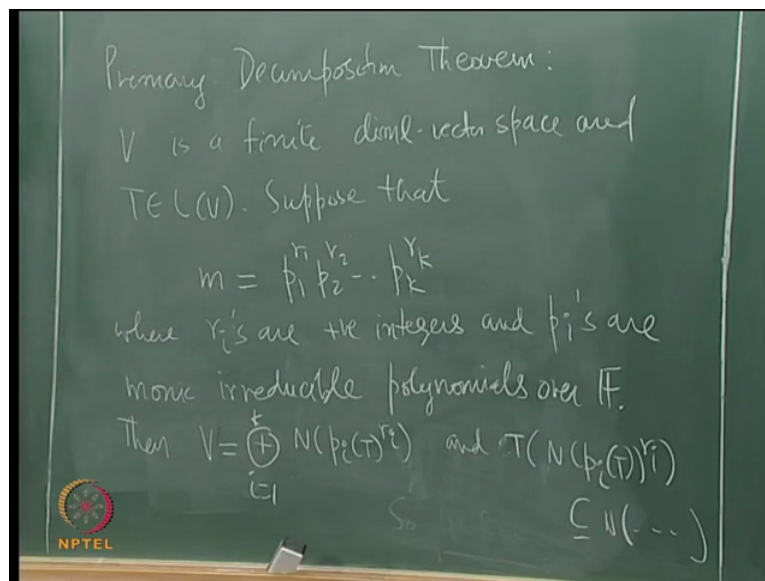 Primary Decomposition Theorem:
V is a finite diml. vector space and
T ∈ L(V). Suppose that
m = p₁^r₁ p₂^r₂ ... pₖ^rₖ
where rᵢ's are +ve integers and pᵢ's are
monic irreducible polynomials over F.
Then V = ⊕ᵢ₌₁ᵏ N(pᵢ(T)^rᵢ) and T(N(pᵢ(T))^rᵢ)
⊆ N(---)
NPTEL